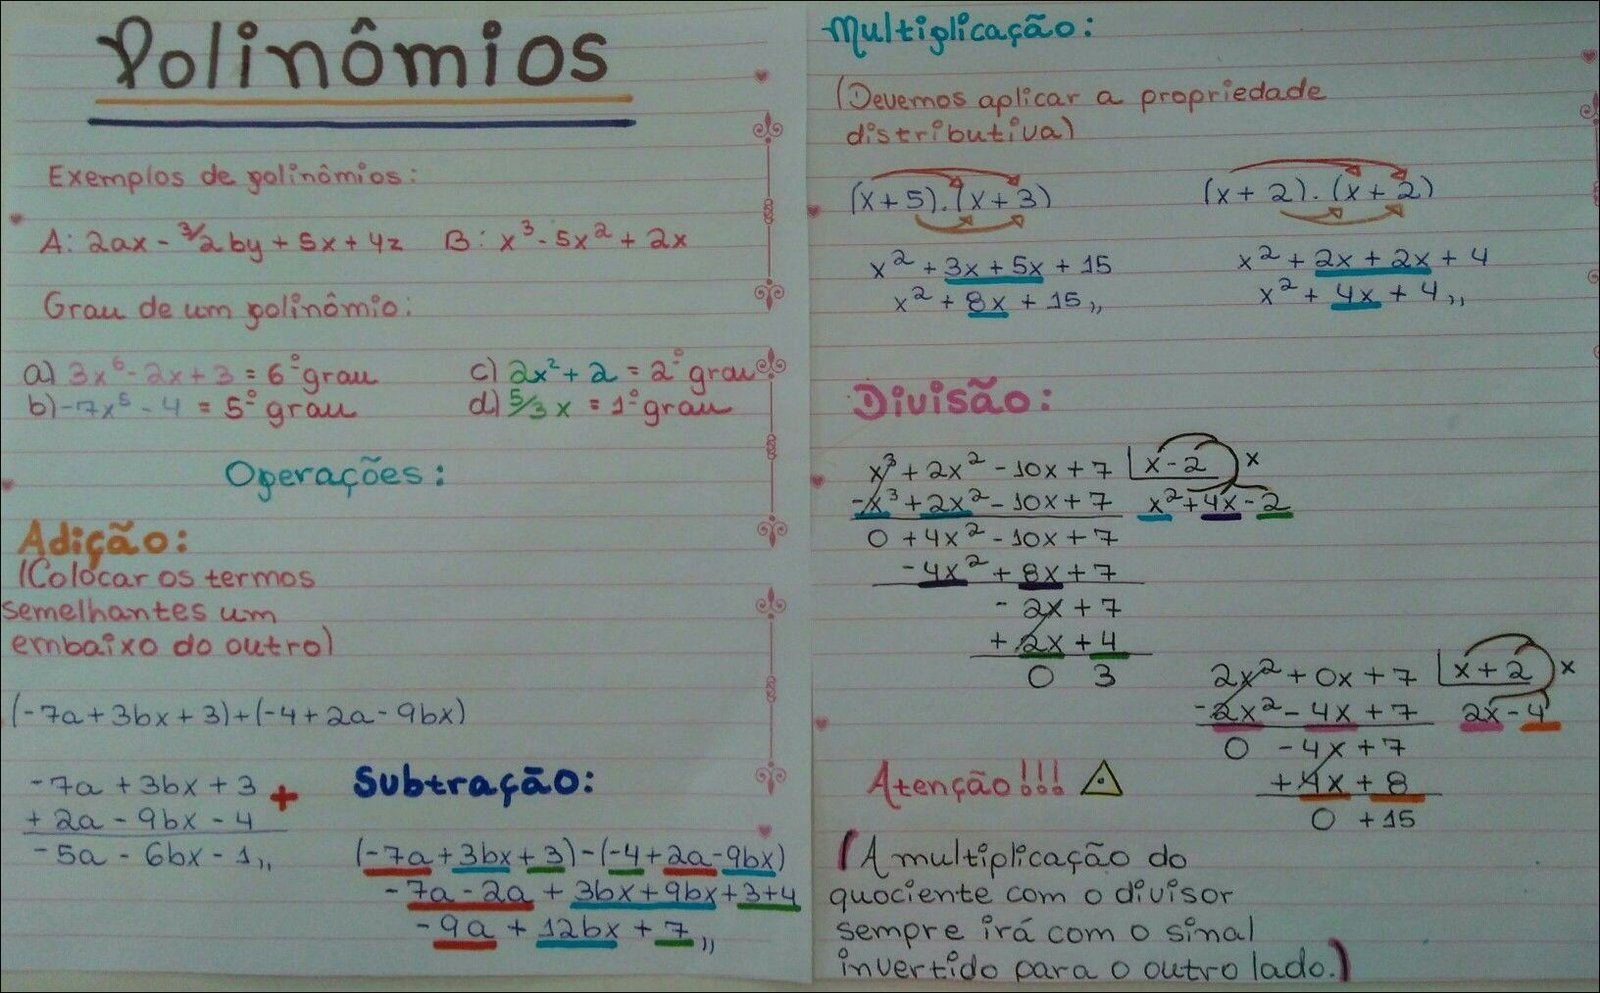 Polinômios
Exemplos de polinômios:
A: 2ax - 3/2 by + 5x + 4z B: x³ - 5x² + 2x
Grau de um polinômio:
a) 3x⁶ - 2x + 3 = 6º grau c) 2x² + 2 = 2º grau
b) -7x⁵ - 4 = 5º grau d) 5/3 x = 1º grau
Operações:
Adição:
(Colocar os termos
semelhantes um
embaixo do outro)
(-7a + 3bx + 3) + (-4 + 2a - 9bx)
-7a + 3bx + 3 +
+ 2a - 9bx - 4
-5a - 6bx - 1,,
Subtração:
(-7a + 3bx + 3) - (-4 + 2a - 9bx)
-7a - 2a + 3bx + 9bx + 3 + 4
-9a + 12bx + 7,,
Multiplicação:
(Devemos aplicar a propriedade
distributiva)
(x + 5) . (x + 3) (x + 2) . (x + 2)
x² + 3x + 5x + 15 x² + 2x + 2x + 4
x² + 8x + 15,, x² + 4x + 4,,
Divisão:
x³ + 2x² - 10x + 7 | x - 2 x
-x³ + 2x² - 10x + 7 x² + 4x - 2
0 + 4x² - 10x + 7
- 4x² + 8x + 7
- 2x + 7
+ 2x + 4
0 3
2x² + 0x + 7 | x + 2 x
-2x² - 4x + 7 2x - 4
0 - 4x + 7
+ 4x + 8
0 + 15
Atenção!!!
(A multiplicação do
quociente com o divisor
sempre irá com o sinal
invertido para o outro lado.)